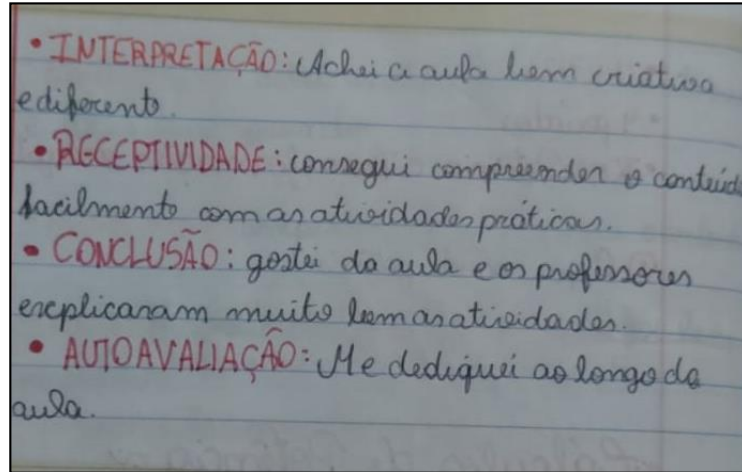 • INTERPRETAÇÃO: Achei a aula bem criativa
e diferente.
• RECEPTIVIDADE: consegui compreender o conteúd
facilmente com as atividades práticas.
• CONCLUSÃO: gostei da aula e os professores
explicaram muito bem as atividades.
• AUTOAVALIAÇÃO: Me dediquei ao longo da
aula.